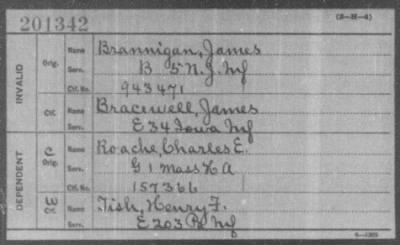 201342
(3-H-4)
INVALID
Orig. Name Brannigan, James
Serv. B 5 N.J. Inf
Ctf. No. 943471
Ctf. Name Bracewell, James
Serv. E 34 Iowa Inf
DEPENDENT
C Orig. Name Roache, Charles E.
Serv. G 1 Mass H A
Ctf. No. 157366
W Ctf. Name Fish, Henry F.
Serv. E 203 Pa Inf